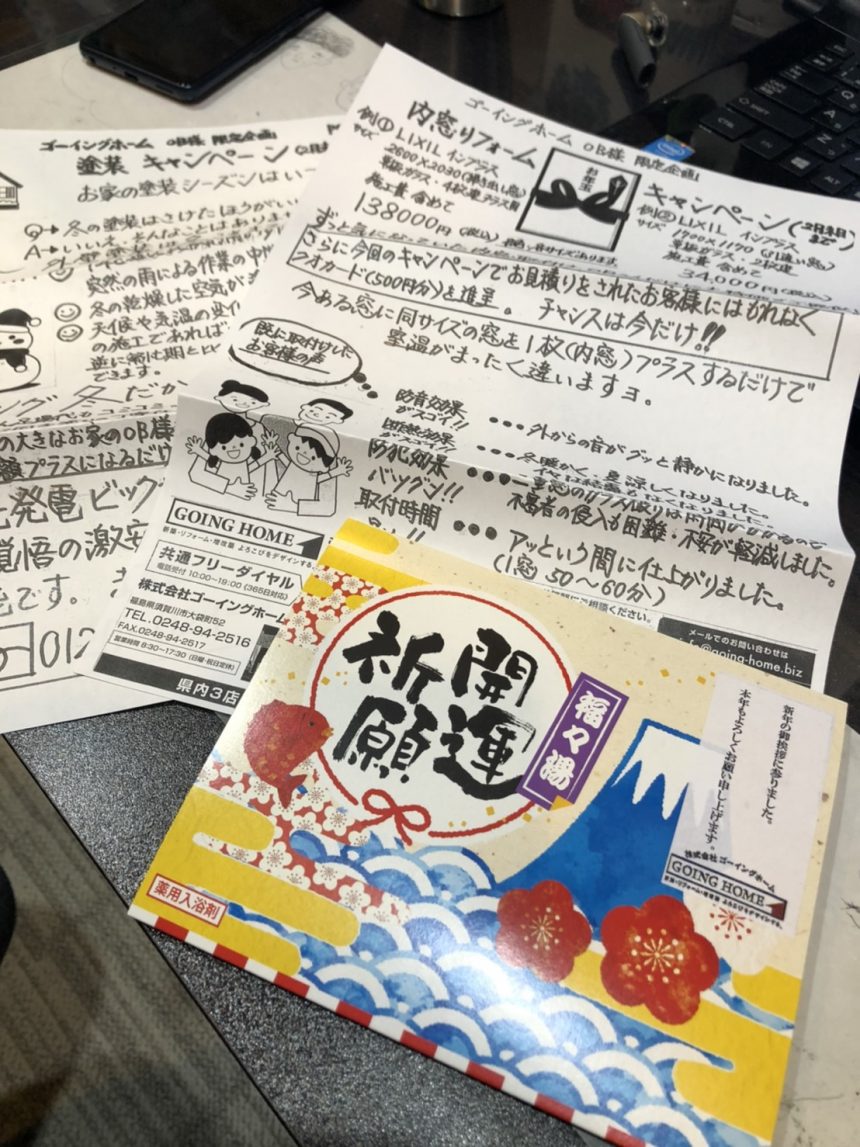 ゴーイングホーム OB様 限定企画
塗装 キャンペーン
お家の塗装シーズンはい
Q→冬の塗装はさけたほうがい
A→いいえ、そんなことはありま
突然の雨による作業の中
冬の乾燥した空気が
天候や気温の変化
の施工であれば
できます。
の大きなお家のOB様
額プラスになるだけ
発電 ビッグ
覚悟の激安
です。
012
ゴーイングホーム OB様 限定企画
内窓リフォーム
お年玉
キャンペーン(2月末日まで)
例① LIXIL インプラス
サイズ 2600×2030(掃き出し窓)
単板ガラス・4枚建
施工費 含めて
138000円(税込)
例② LIXIL インプラス
サイズ 1790×1170 (引違い窓)
単板ガラス・2枚建
施工費 含めて
34,000円(税込)
さらに今回のキャンペーンでお見積りをされたお客様にはもれなく
クオカード(500円分)を進呈。 チャンスは今だけ!!
今ある窓に同サイズの窓を1枚(内窓)プラスするだけで
室温がまったく違いますヨ。
既に取付けした
お客様の声
防音効果
がスゴイ!!
・・・外からの音がグッと静かになりました。
断熱効果
がスゴイ!!
・・・冬暖かく、夏涼しくなりました。
防犯効果
バツグン!!
不審者の侵入も困難・不安が軽減しました。
取付時間
・・・アッという間に仕上がりました。
(1窓 50~60分)
GOING HOME
新築・リフォーム・増改築 よろこびをデザインする。
共通フリーダイヤル
電話受付 10:00~19:00 (365日対応)
株式会社ゴーイングホーム
福島県須賀川市大袋町52
TEL.0248-94-2516
FAX.0248-94-2517
営業時間 8:30~17:30 (日曜・祝日定休)
県内3店
ご相談ください。
メールでのお問い合わせは
info@going-home.biz
開運
祈願
福々湯
薬用入浴剤
新年の御挨拶に参りました。
本年もよろしくお願い申し上げます。
株式会社ゴーイングホーム
GOING HOME
新築・リフォーム・増改築 よろこびをデザインする。
SHIFT
CTRL
FN
ALT
intel